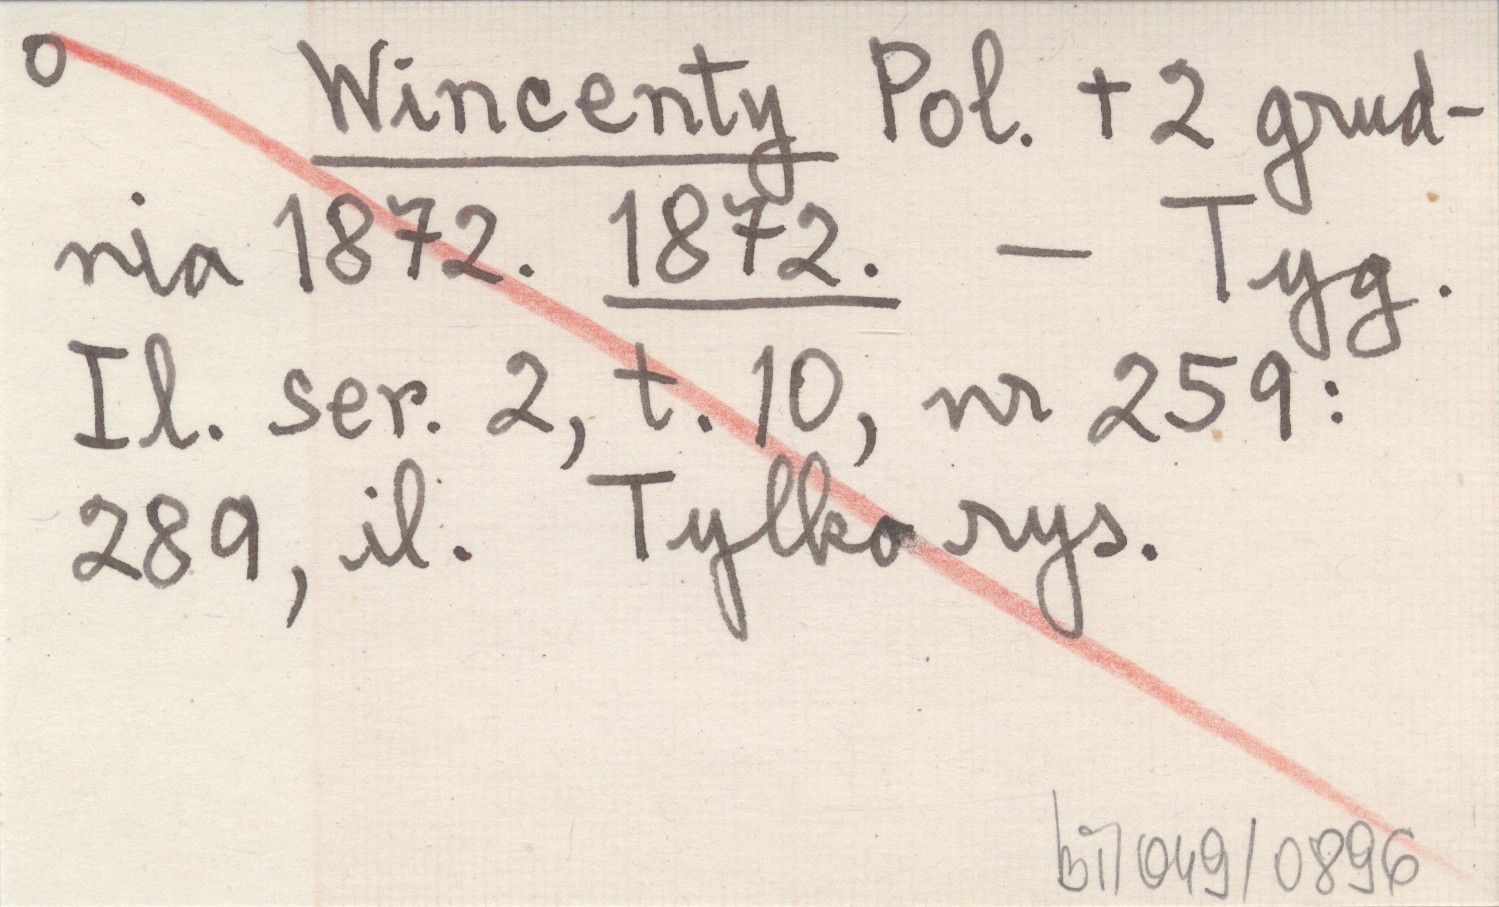 o Wincenty Pol. +2 grud-
nia 1872. 1872. — Tyg.
Il. ser. 2, t. 10, nr 259:
289, il. Tylko rys.
bi7049/0896